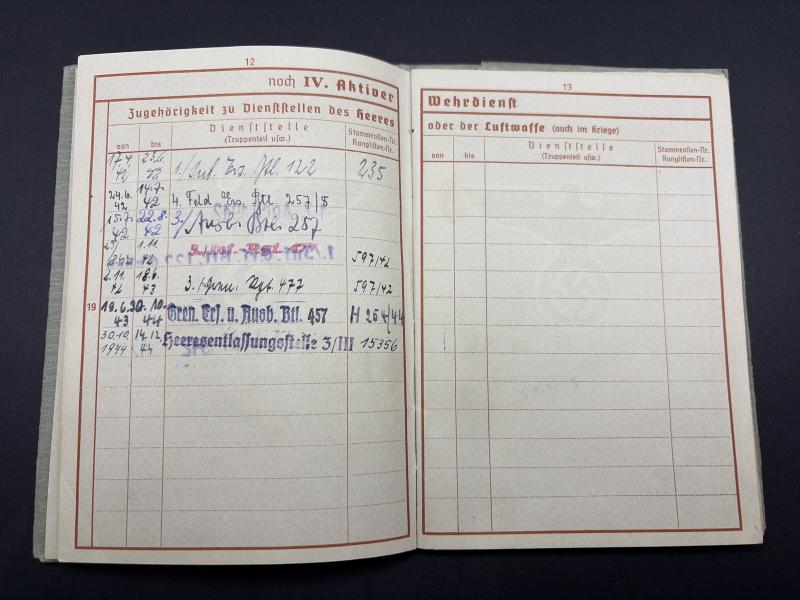 12
noch IV. Aktiver
Zugehörigkeit zu Dienststellen des Heeres
von bis Dienststelle (Truppenteil usw.) Stammrollen-Nr. Ranglisten-Nr.
17.4. 42 23.6. 42 1./Inf. Ers. Btl. 122 235
24.6. 42 14.7. 42 4. Feld Ers. Btl. 257/5
15.7. 42 22.8. 42 3./Ausb. Btl. 257
1.11. 42 597/42
2.11. 42 18.6. 43 3./Gren. Rgt. 477 597/42
19
19.6. 43 30.10. 44 Gren. Ers. u. Ausb. Btl. 457 H 254/44
30.10. 1944 14.12. 44 Heeresentlassungsstelle 3/III 15356
13
Wehrdienst
oder der Luftwaffe (auch im Kriege)
von bis Dienststelle (Truppenteil usw.) Stammrollen-Nr. Ranglisten-Nr.